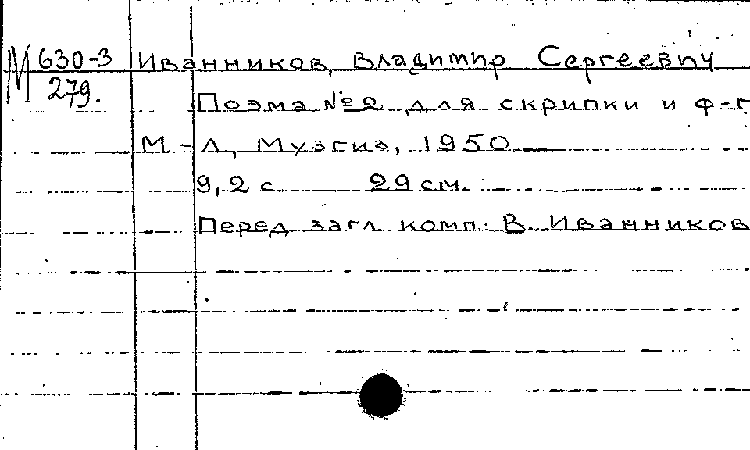 М 630-3
279.
Иванников, Владимир Сергеевич
Поэма № 2 для скрипки и ф-г
М-Л, Музгиз, 1950
9, 2 с 29 см.
Перед загл комп: В. Иванников